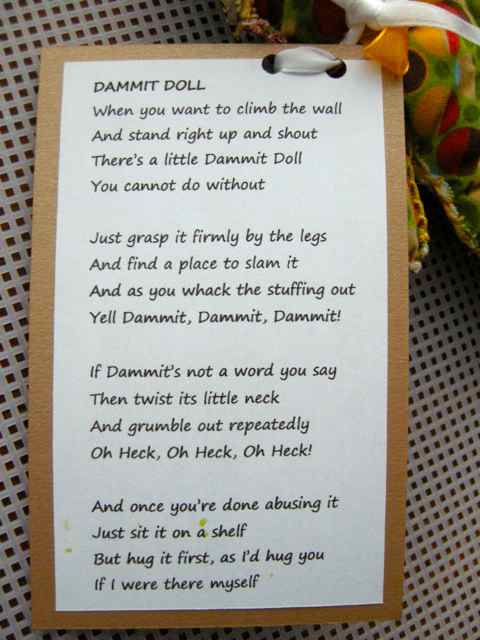 DAMMIT DOLL
When you want to climb the wall
And stand right up and shout
There's a little Dammit Doll
You cannot do without
Just grasp it firmly by the legs
And find a place to slam it
And as you whack the stuffing out
Yell Dammit, Dammit, Dammit!
If Dammit's not a word you say
Then twist its little neck
And grumble out repeatedly
Oh Heck, Oh Heck, Oh Heck!
And once you're done abusing it
Just sit it on a shelf
But hug it first, as I'd hug you
If I were there myself